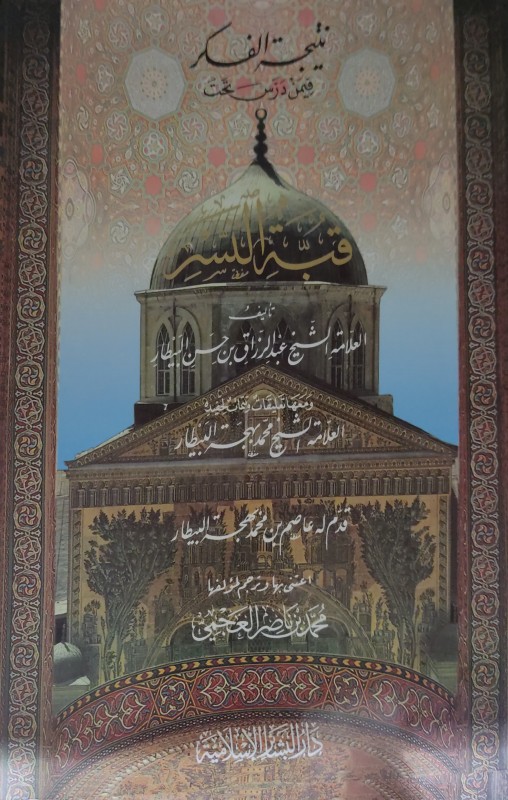 نتيجة الفكر
فيمن درس تحت
قبة النسر
تأليف
العلامة الشيخ عبد الرزاق بن حسن البيطار
ومعها تعليقات وتتمات لحفيده
العلامة الشيخ محمد بهجة البيطار
قدم له عاصم بن محمد بهجة البيطار
اعتنى بها وترجم لمؤلفها
محمد بن ناصر العجمي
دار البشائر الإسلامية